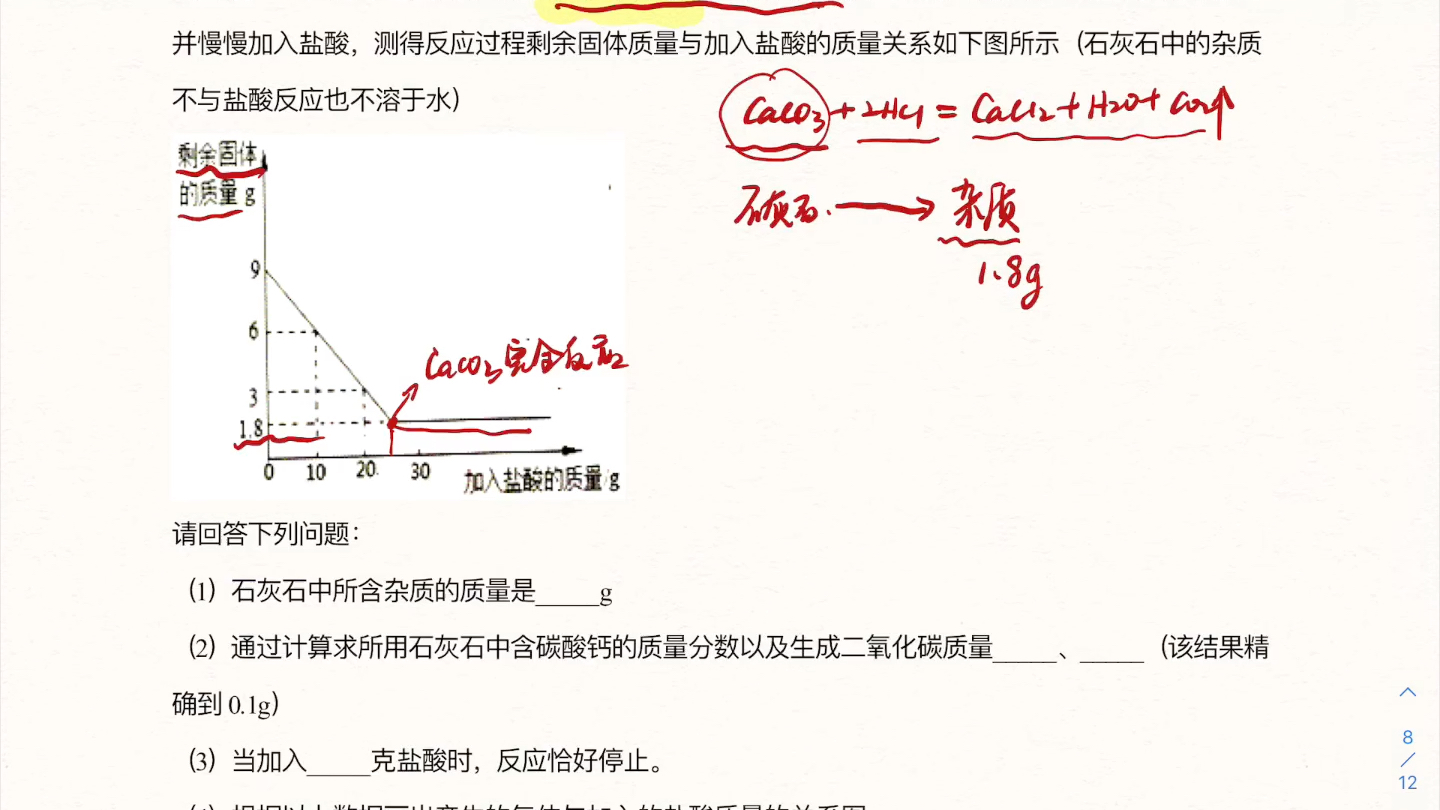 并慢慢加入盐酸，测得反应过程剩余固体质量与加入盐酸的质量关系如下图所示（石灰石中的杂质
不与盐酸反应也不溶于水）
CaCO3 + 2HCl = CaCl2 + H2O + CO2↑
石灰石 → 杂质
1.8g
剩余固体
的质量 g
9
6
3
1.8
CaCO3完全反应
0 10 20 30
加入盐酸的质量/g
请回答下列问题：
（1）石灰石中所含杂质的质量是_____g
（2）通过计算求所用石灰石中含碳酸钙的质量分数以及生成二氧化碳质量_____、_____（该结果精
确到 0.1g）
（3）当加入_____克盐酸时，反应恰好停止。
8
/
12